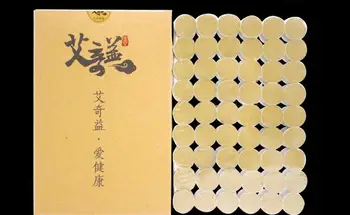 艾奇益
艾奇益·爱健康